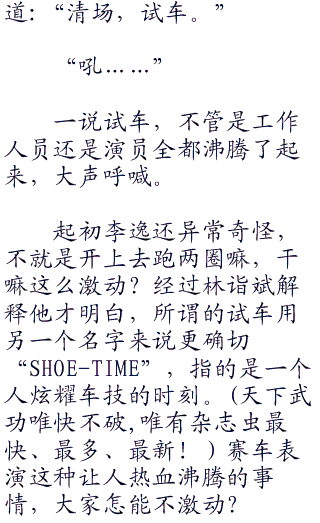 道：“清场，试车。”
“吼……”
一说试车，不管是工作
人员还是演员全都沸腾了起
来，大声呼喊。
起初李逸还异常奇怪，
不就是开上去跑两圈嘛，干
嘛这么激动？经过林诣斌解
释他才明白，所谓的试车用
另一个名字来说更确切
“SHOE-TIME”，指的是一个
人炫耀车技的时刻。(天下武
功唯快不破,唯有杂志虫最
快、最多、最新！ ) 赛车表
演这种让人热血沸腾的事
情，大家怎能不激动？